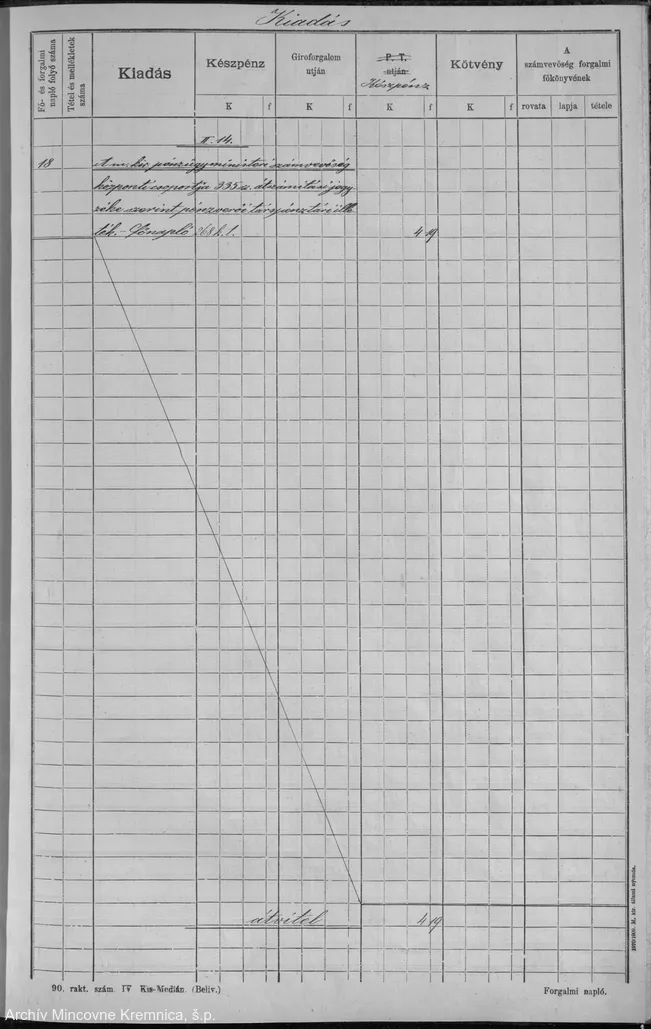 Kiadás
Fő- és forgalmi napló folyó száma
Tétel és mellékletek száma
Kiadás
Készpénz
Giroforgalom utján
P. T. utján
Készpénz
Kötvény
A számvevőség forgalmi főkönyvének
K f K f K f K f rovata lapja tétele
II. 14.
18 A m. kir. pénzügyministeri számvevőség
központi csoportja 335 sz. átszámítási jegy
zéke szerint pénzverői tárgypénztári
ték. - Főnapló 268 k. 1. 4 19
átvitel 4 19
90. rakt. szám. IV Kis-Medián. (Beliv.)
Forgalmi napló.
M. kir. állami nyomda.
Archív Mincovne Kremnica, š.p.